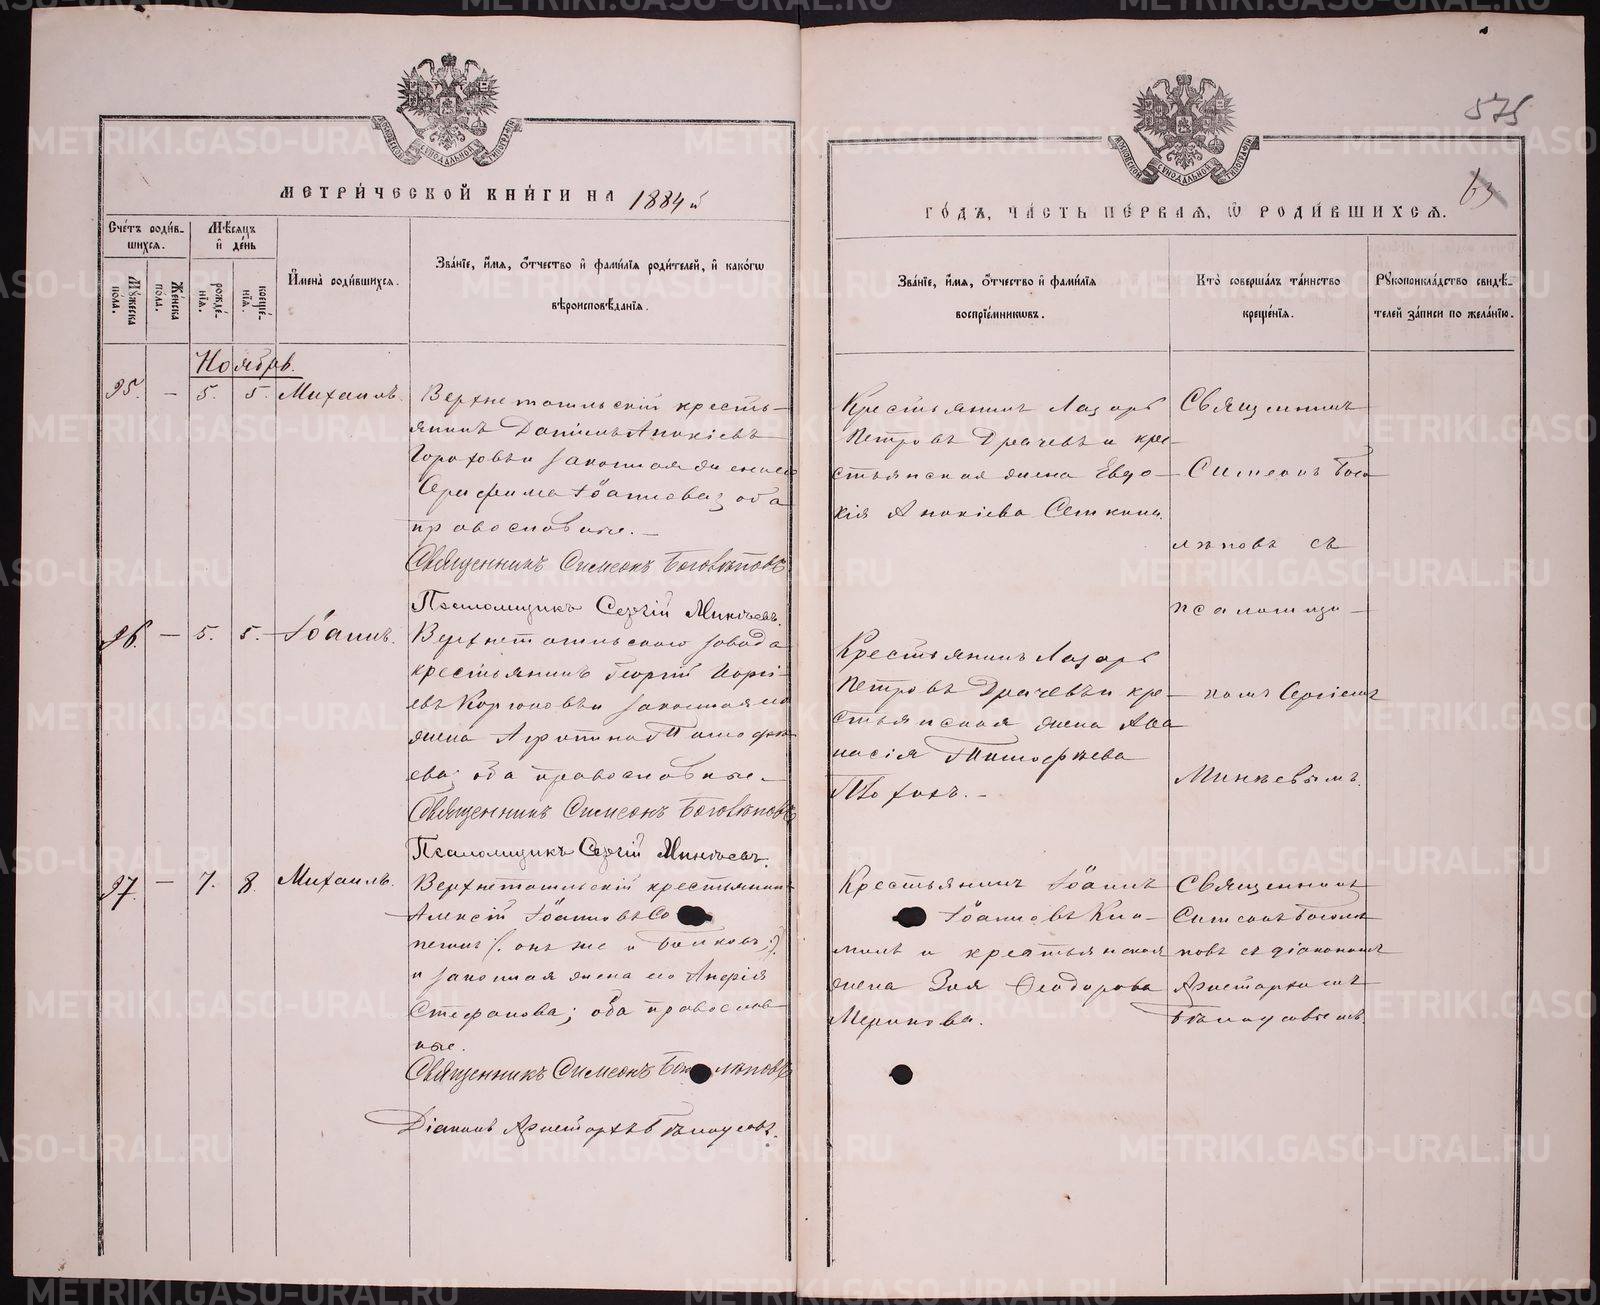 575
63
МЕТРИ́ЧЕСКОЙ КНИ́ГИ НА 1884 й
ГО́ДЪ, ЧА́СТЬ ПЕ́РВАЯ, Ѡ РОДИ́ВШИХСЯ.
Сче́тъ роди́в-
шихся.
Му́жеска
по́ла.
Же́нска
по́ла.
Мѣ́сяцъ
и҆ де́нь
рожде́-
нїѧ.
креще́-
нїѧ.
И҆мена̀ роди́вшихся.
Зва́нїе, и҆́мя, ѻ҆́тчество и҆ фами́лїя роди́телей, и҆ како́гѡ
вѣроисповѣ́данїя.
Зва́нїе, и҆́мя, ѻ҆́тчество и҆ фами́лїя
воспрїе́мникѡвъ.
Кто̀ соверша́лъ та́инство
креще́нїя.
Рꙋкоприкла́дство свидѣ́-
телей за́писи по жела́нїю.
Ноябрь.
95. — 5. 5. Михаилъ.
Верхнетагильскій кресть-
янинъ Даніилъ Аникіевъ
Гороховъ и законная жена его
Серафима Іоаннова; оба
православные. —
Священникъ Симеонъ Боголѣповъ
Псаломщикъ Сергій Минѣевъ.
Крестьянинъ Лазарь
Петровъ Драчевъ и кре-
стьянская жена Евдо-
кія Аникіева
Священникъ
Симеонъ Бого-
лѣповъ съ
псаломщи-
комъ Сергіемъ
Минѣевымъ.
96. — 5. 5. Іоаннъ.
Верхнетагильскаго завода
крестьянинъ Георгій Георгі-
евъ и законная его
жена Агрипина Тимофѣ-
ева; оба православные. —
Священникъ Симеонъ Боголѣповъ
Псаломщикъ Сергій Минѣевъ.
Крестьянинъ Лазарь
Петровъ Драчевъ и кре-
стьянская жена Аѳа-
насія Тимофѣева
97. — 7. 8. Михаилъ.
Верхнетагильскій крестьянинъ
Алексій Іоанновъ Со
(. онъ же и .)
и законная жена его
Стефанова; оба православ-
ные.
Священникъ Симеонъ Боголѣповъ
Діаконъ Аристархъ Бѣлоусовъ.
Крестьянинъ Іоаннъ
Іоанновъ
и крестьянская
жена Зоя Ѳеодорова
Священникъ
Симеонъ Боголѣ-
повъ съ діакономъ
Аристархомъ
Бѣлоусовымъ.
METRIKI.GASO-URAL.RU